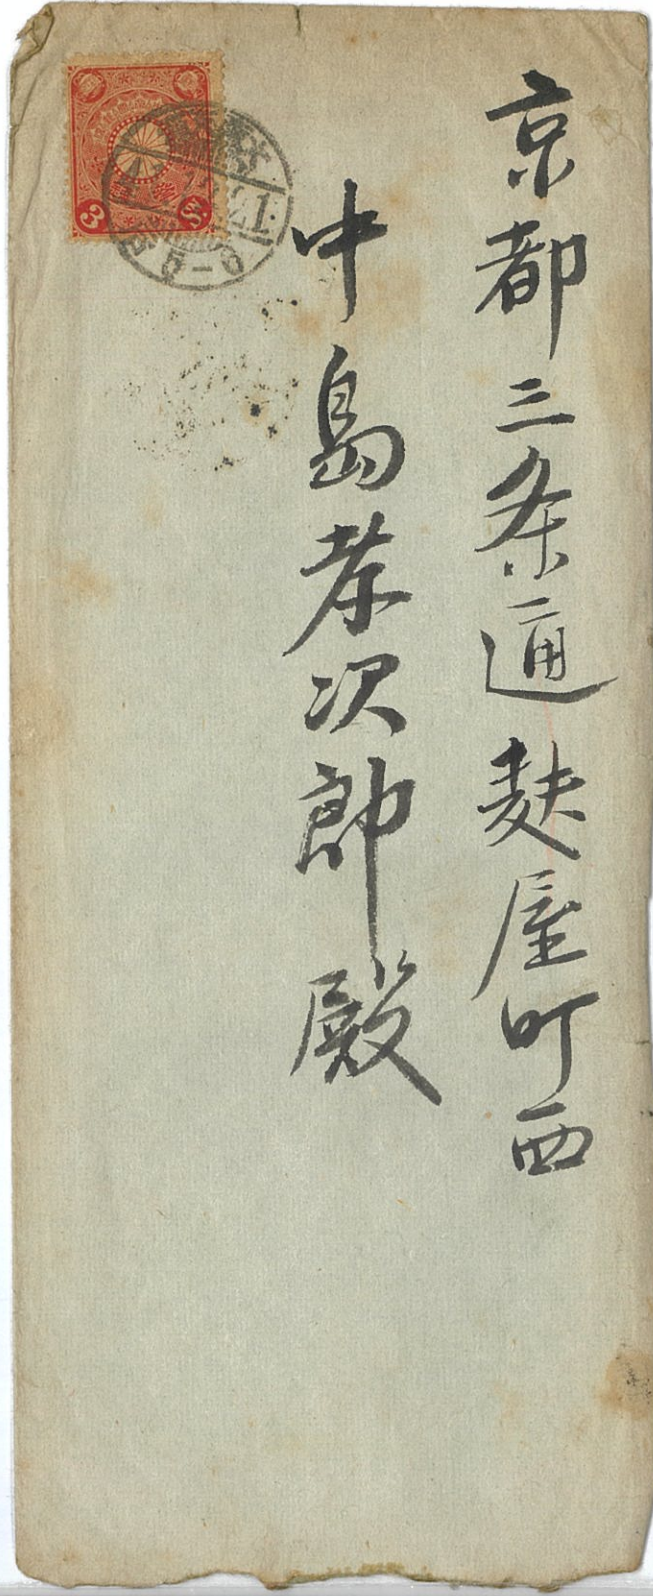 京都三条通麸屋町西
中島孝次郎殿
3 Sn.
21